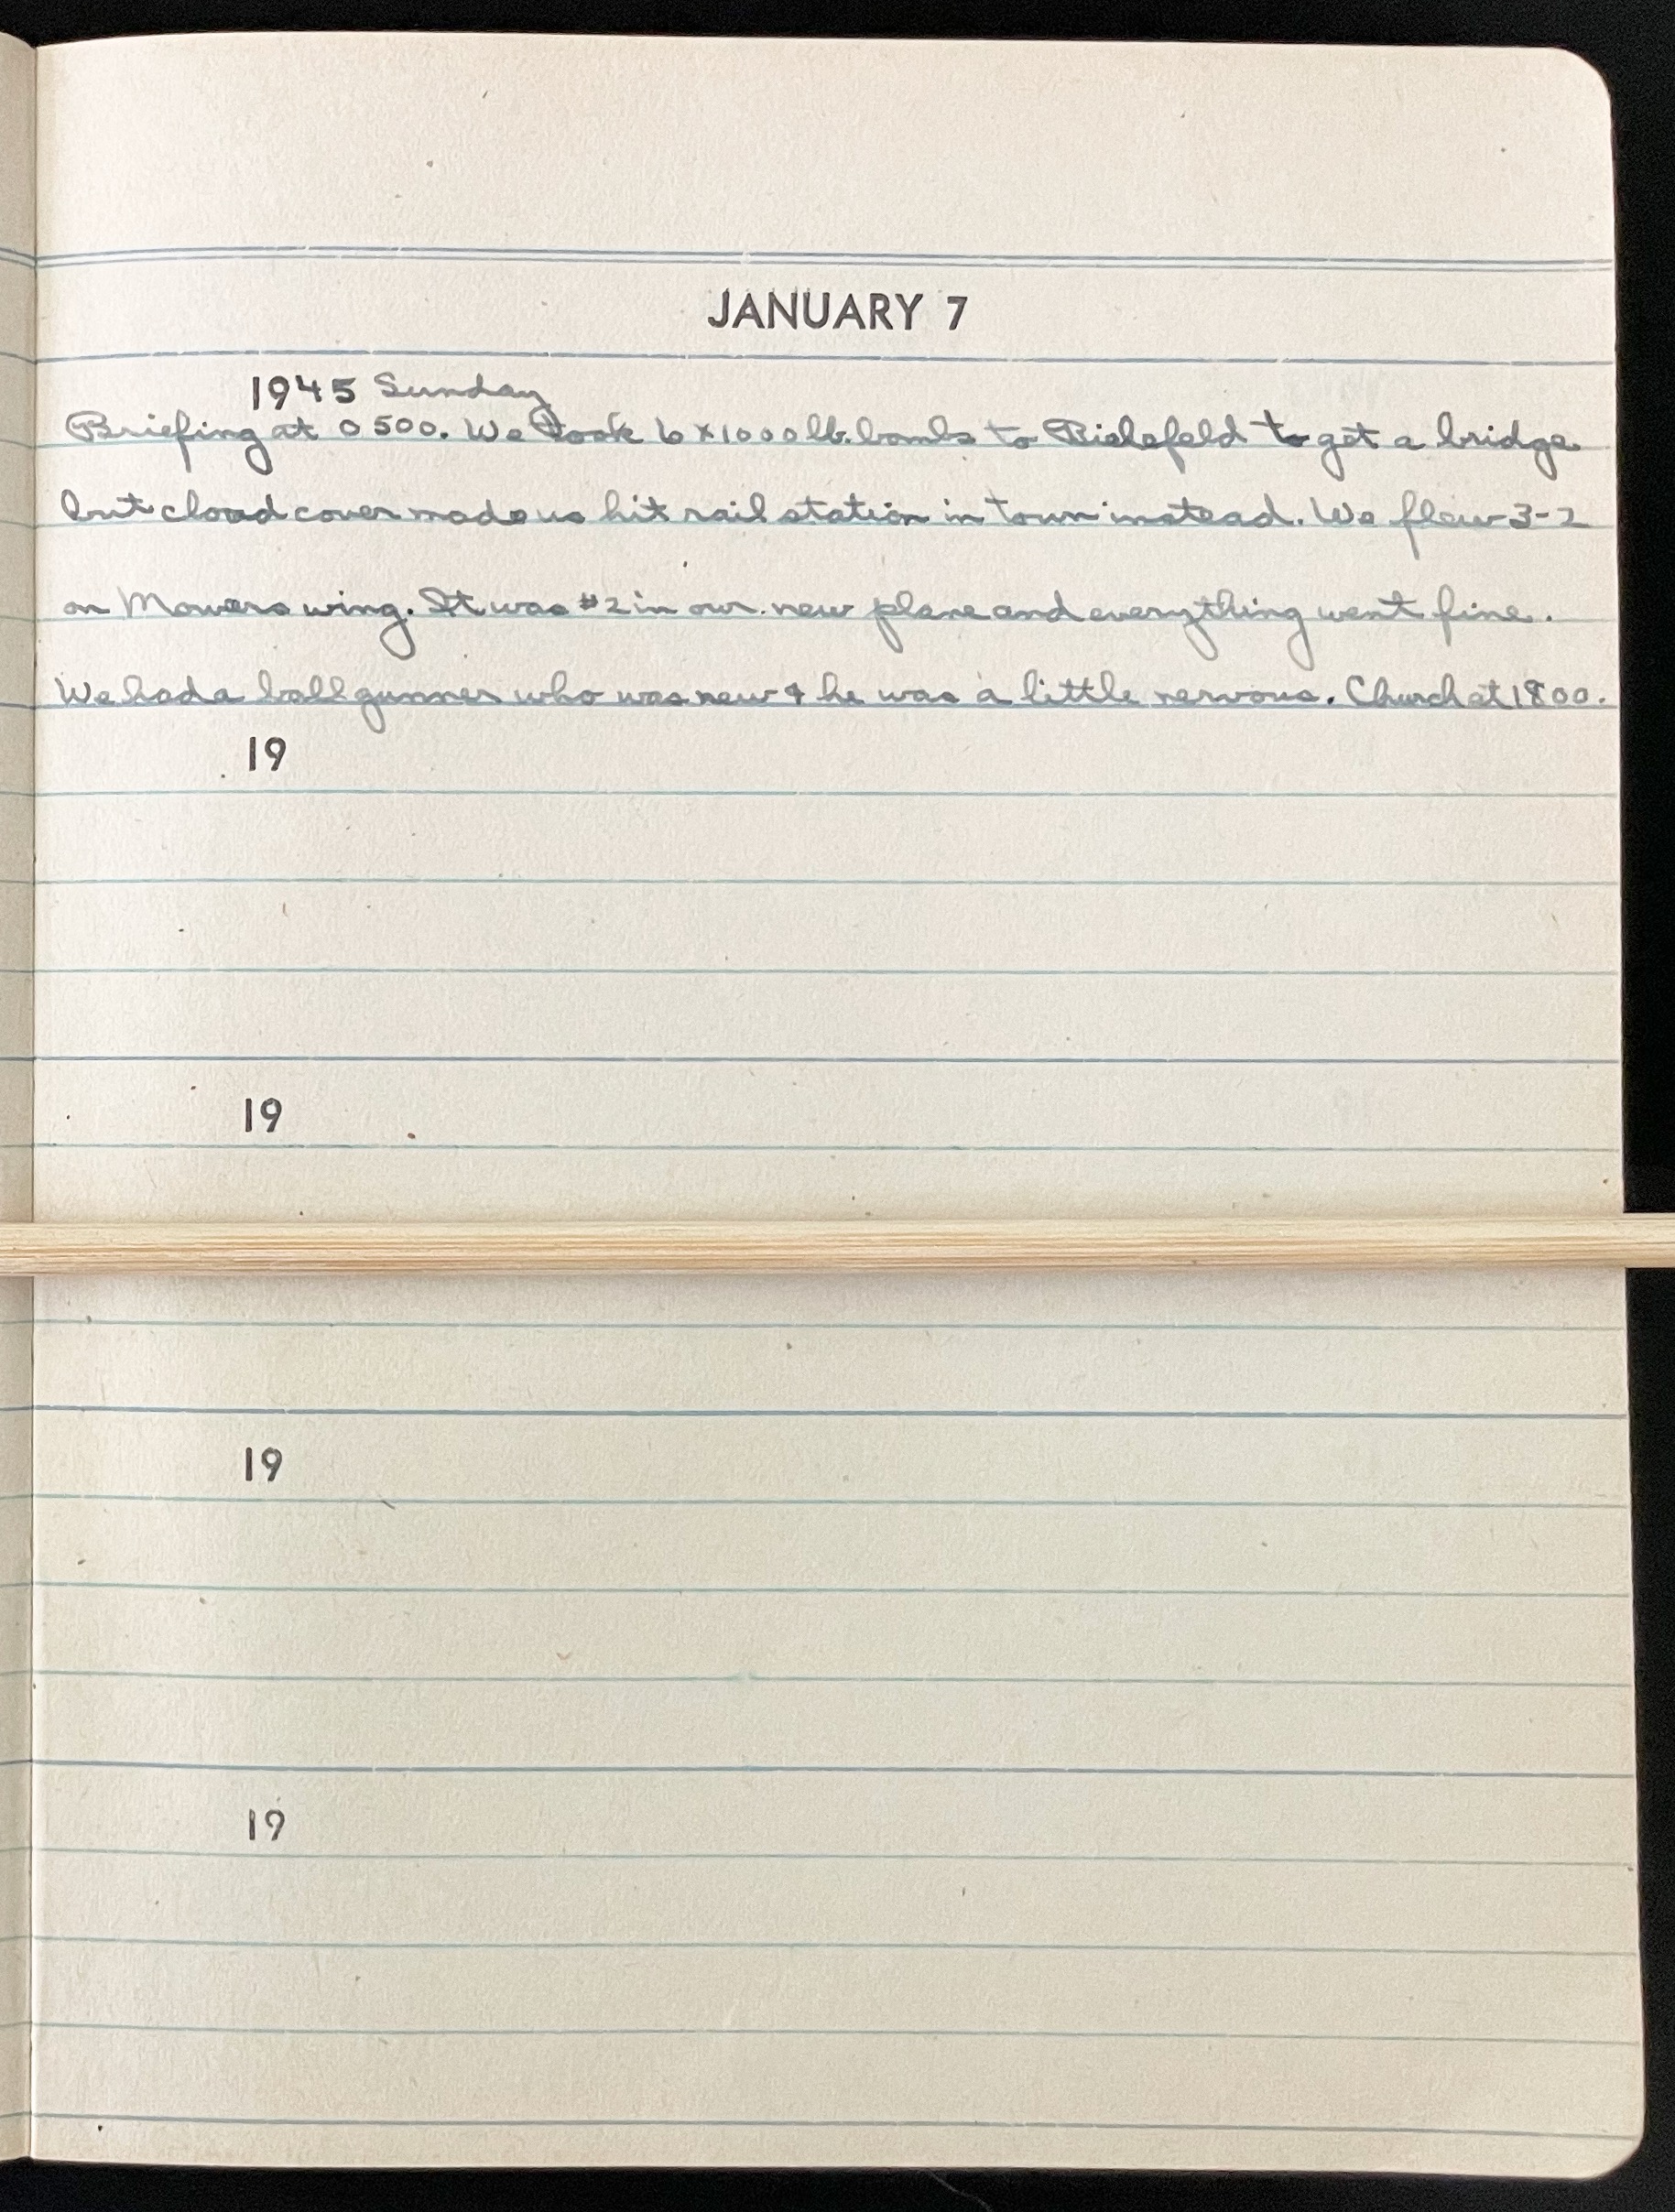 JANUARY 7
1945 Sunday
Briefing at 0500. We took 6 x 1000 lb. bombs to Bielefeld to get a bridge
but cloud cover made us hit rail station in town instead. We flew 3-2
on Mowers wing. It was #2 in our new plane and everything went fine.
We had a ball gunner who was new & he was a little nervous. Church at 1800.
19
19
19
19